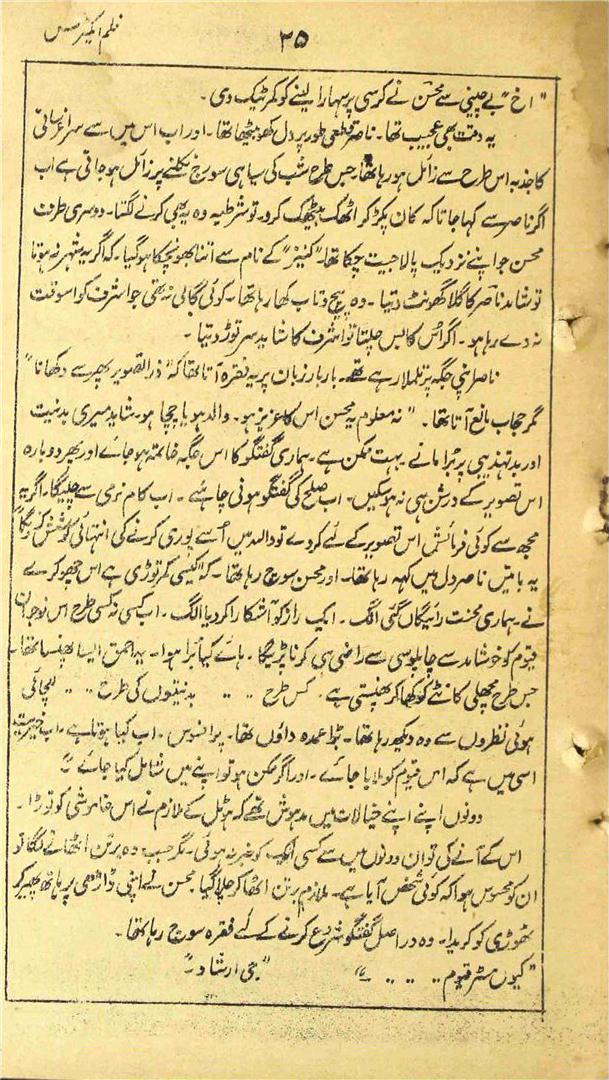 ۳۵
فلم ایکٹرسیں
"اخ" بے چینی سے محسن نے کرسی پر سہارا لینے کو کمر ٹیک دی۔
یہ وقت بھی عجیب تھا۔ ناصر قطعی طور پر دل کھو بیٹھا تھا۔ اور اب اس میں سے سراغرسانی
کا جذبہ اس طرح سے زائل ہو رہا تھا۔ جس طرح شب کی سیاہی سورج نکلنے پر زائل ہو جاتی ہے اب
اگر ناصر سے کہا جاتا کہ کان پکڑ کر اٹھک بیٹھک کرو۔ تو شرطیہ وہ یہ بھی کرنے لگتا۔ دوسری طرف
محسن جو اپنے نزدیک پالا جیت چکا تھا۔ "کنیز" کے نام سے اتنا بھونچکا ہو گیا۔ کہ اگر یہ شہر نہ ہوتا
تو شاید ناصر کا گلا گھونٹ دیتا۔ وہ پیچ و تاب کھا رہا تھا۔ کوئی گالی نہ تھی جو اشرف کو اسوقت
نہ دے رہا ہو۔ اگر اس کا بس چلتا تو اشرف کا شاید سر توڑ دیتا۔
ناصر اپنی جگہ پر تلملا رہے تھے۔ بار بار زبان پر یہ فقرہ آتا تھا کہ "ذرا تصویر پھر سے دکھانا"
مگر حجاب مانع آتا تھا۔ "نہ معلوم یہ محسن اس کا عزیز ہو۔ والد ہو یا چچا ہو۔ شاید میری بدنیت
اور بدتہذیبی پر بُرا مانے بہت ممکن ہے۔ ہماری گفتگو کا اس جگہ خاتمہ ہو جائے اور پھر دوبارہ
اس تصویر کے درشن ہی نہ ہو سکیں۔ اب صلح کی گفتگو ہونی چاہئے۔ اب کام نرمی سے چلیگا۔ اگر یہ
مجھ سے کوئی فرمائش اس تصویر کے لئے کردے تو والله میں اُسے پوری کرنے کی انتہائی کوشش کرونگا"
یہ باتیں ناصر دل میں کہہ رہا تھا۔ اور محسن سوچ رہا تھا۔ کہ "کیسی کمر توڑی ہے اس چھوکرے
نے۔ ہماری محنت رائیگاں گئی الگ۔ ایک راز کو آشکارا کر دیا الگ۔ اب کسی نہ کسی طرح اس نوجوان
قیوم کو خوشامد سے چاپلوسی سے راضی ہی کرنا پڑیگا۔ ہائے کیا بُرا ہوا۔ یہ احمق ایسا پھنسا تھا
جس طرح مچھلی کانٹے کو کھا کر پھنستی ہے۔ کس طرح .. .. .. بدنیتوں کی طرح .. .. للچائی
ہوئی نظروں سے وہ دیکھ رہا تھا۔ بڑا عمدہ داؤں تھا۔ پر افسوس۔ اب کیا ہوتا ہے۔ اب خیریت
اسی میں ہے کہ اس قیوم کو ملایا جائے۔ اور اگر ممکن ہو تو اپنے میں شامل کیا جائے"
دونوں اپنے اپنے خیالات میں مدہوش تھے کہ ہوٹل کے ملازم نے اس خاموشی کو توڑا۔
اس کے آنے کی تو ان دونوں میں سے کسی ایک کو خبر نہ ہوئی۔ مگر جب وہ برتن اٹھانے لگا تو
ان کو محسوس ہوا کہ کوئی شخص آیا ہے۔ ملازم برتن اٹھا کر چلا گیا محسن نے اپنی داڑھی پر ہاتھ پھیر کر
ٹھوڑی کو کریدا۔ وہ دراصل گفتگو شروع کرنے کے لئے فقرہ سوچ رہا تھا۔
"کیوں مسٹر قیوم .. .. .. " "جی ارشاد"